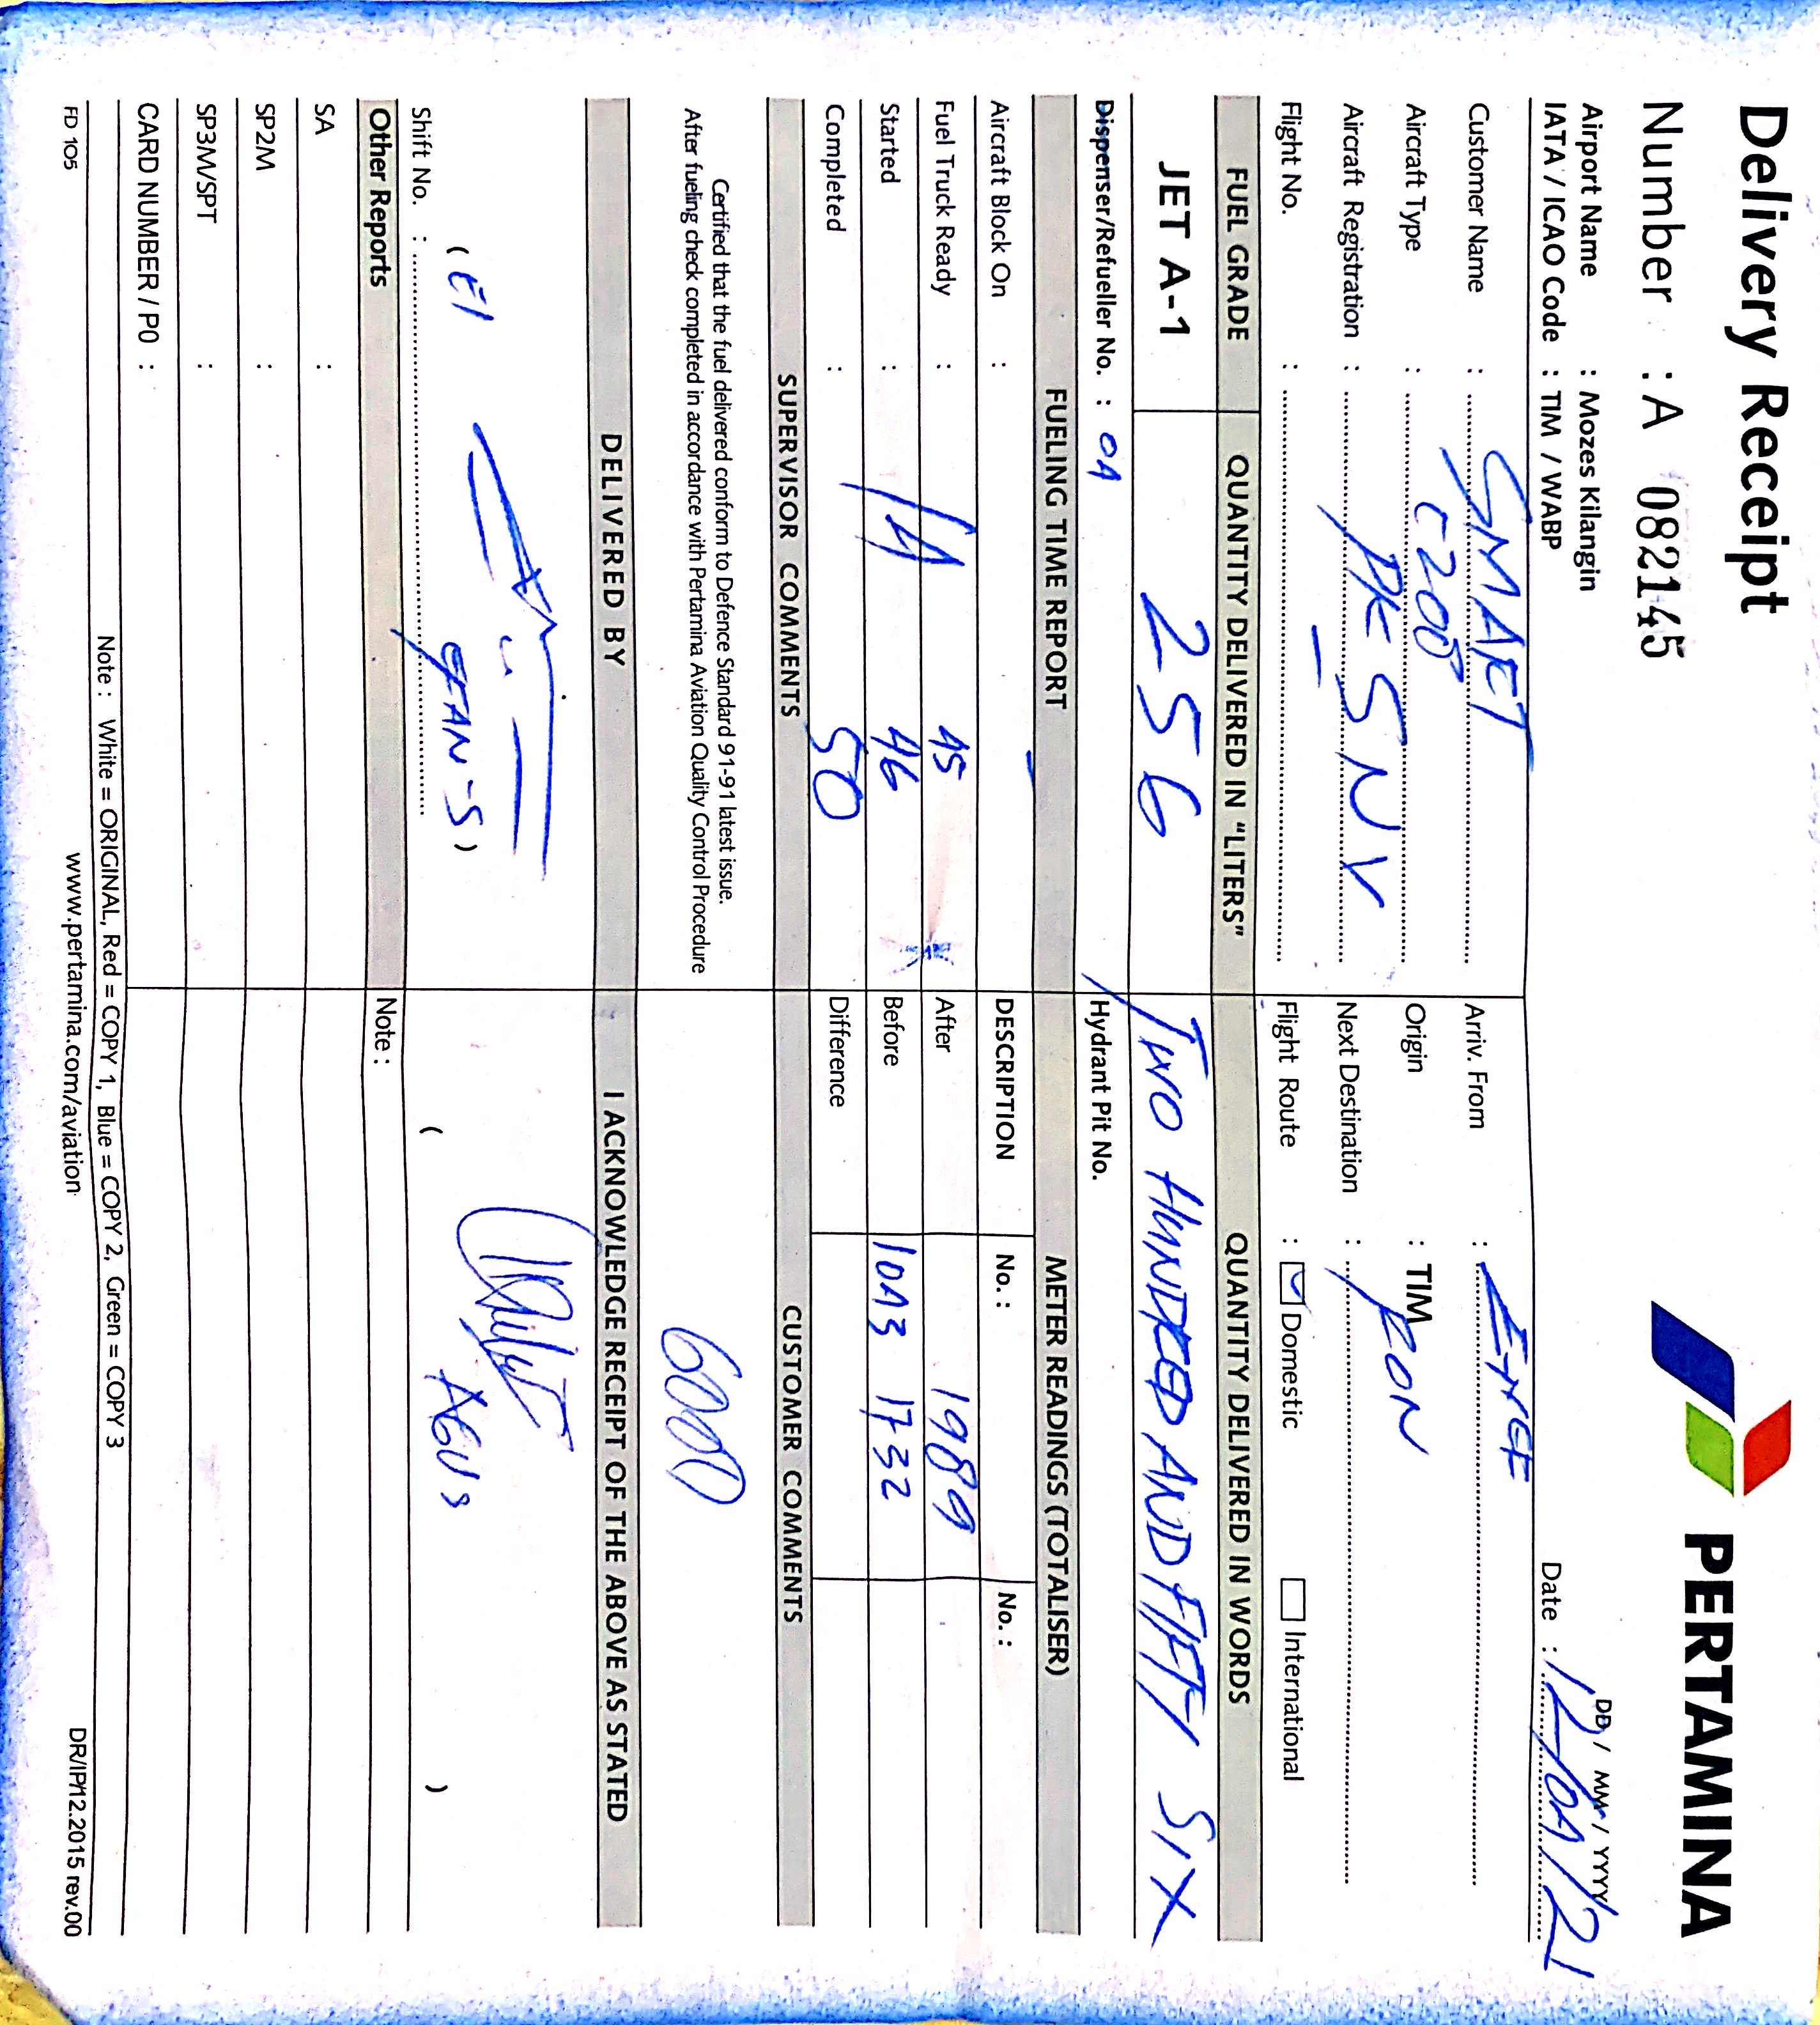 Delivery Receipt
PERTAMINA
Number : A 082145
DD / MM / YYYY
Airport Name : Mozes Kilangin
IATA / ICAO Code : TIM / WABP
Date :
Customer Name : SMART
Arriv. From :
Aircraft Type : C208
Origin : TIM
Aircraft Registration : PK SNV
Next Destination :
Flight No. : –
Flight Route : Domestic International
FUEL GRADE QUANTITY DELIVERED IN "LITERS" QUANTITY DELIVERED IN WORDS
JET A-1 256 TWO HUNDRED AND FIFTY SIX
Dispenser/Refueller No. : Hydrant Pit No.
FUELING TIME REPORT METER READINGS (TOTALISER)
Aircraft Block On : DESCRIPTION No. : No. :
Fuel Truck Ready : 45 After 1989
Started : 14 46 Before 1732
Completed : 50 Difference
SUPERVISOR COMMENTS CUSTOMER COMMENTS
Certified that the fuel delivered conform to Defence Standard 91-91 latest issue.
After fueling check completed in accordance with Pertamina Aviation Quality Control Procedure
6000
DELIVERED BY I ACKNOWLEDGE RECEIPT OF THE ABOVE AS STATED
AGUS
( )
( )
Shift No. :
Other Reports Note :
SA :
SP2M :
SP3M/SPT :
CARD NUMBER / PO :
Note : White = ORIGINAL, Red = COPY 1, Blue = COPY 2, Green = COPY 3
FD 105 www.pertamina.com/aviation DR/IP/12.2015 rev.00